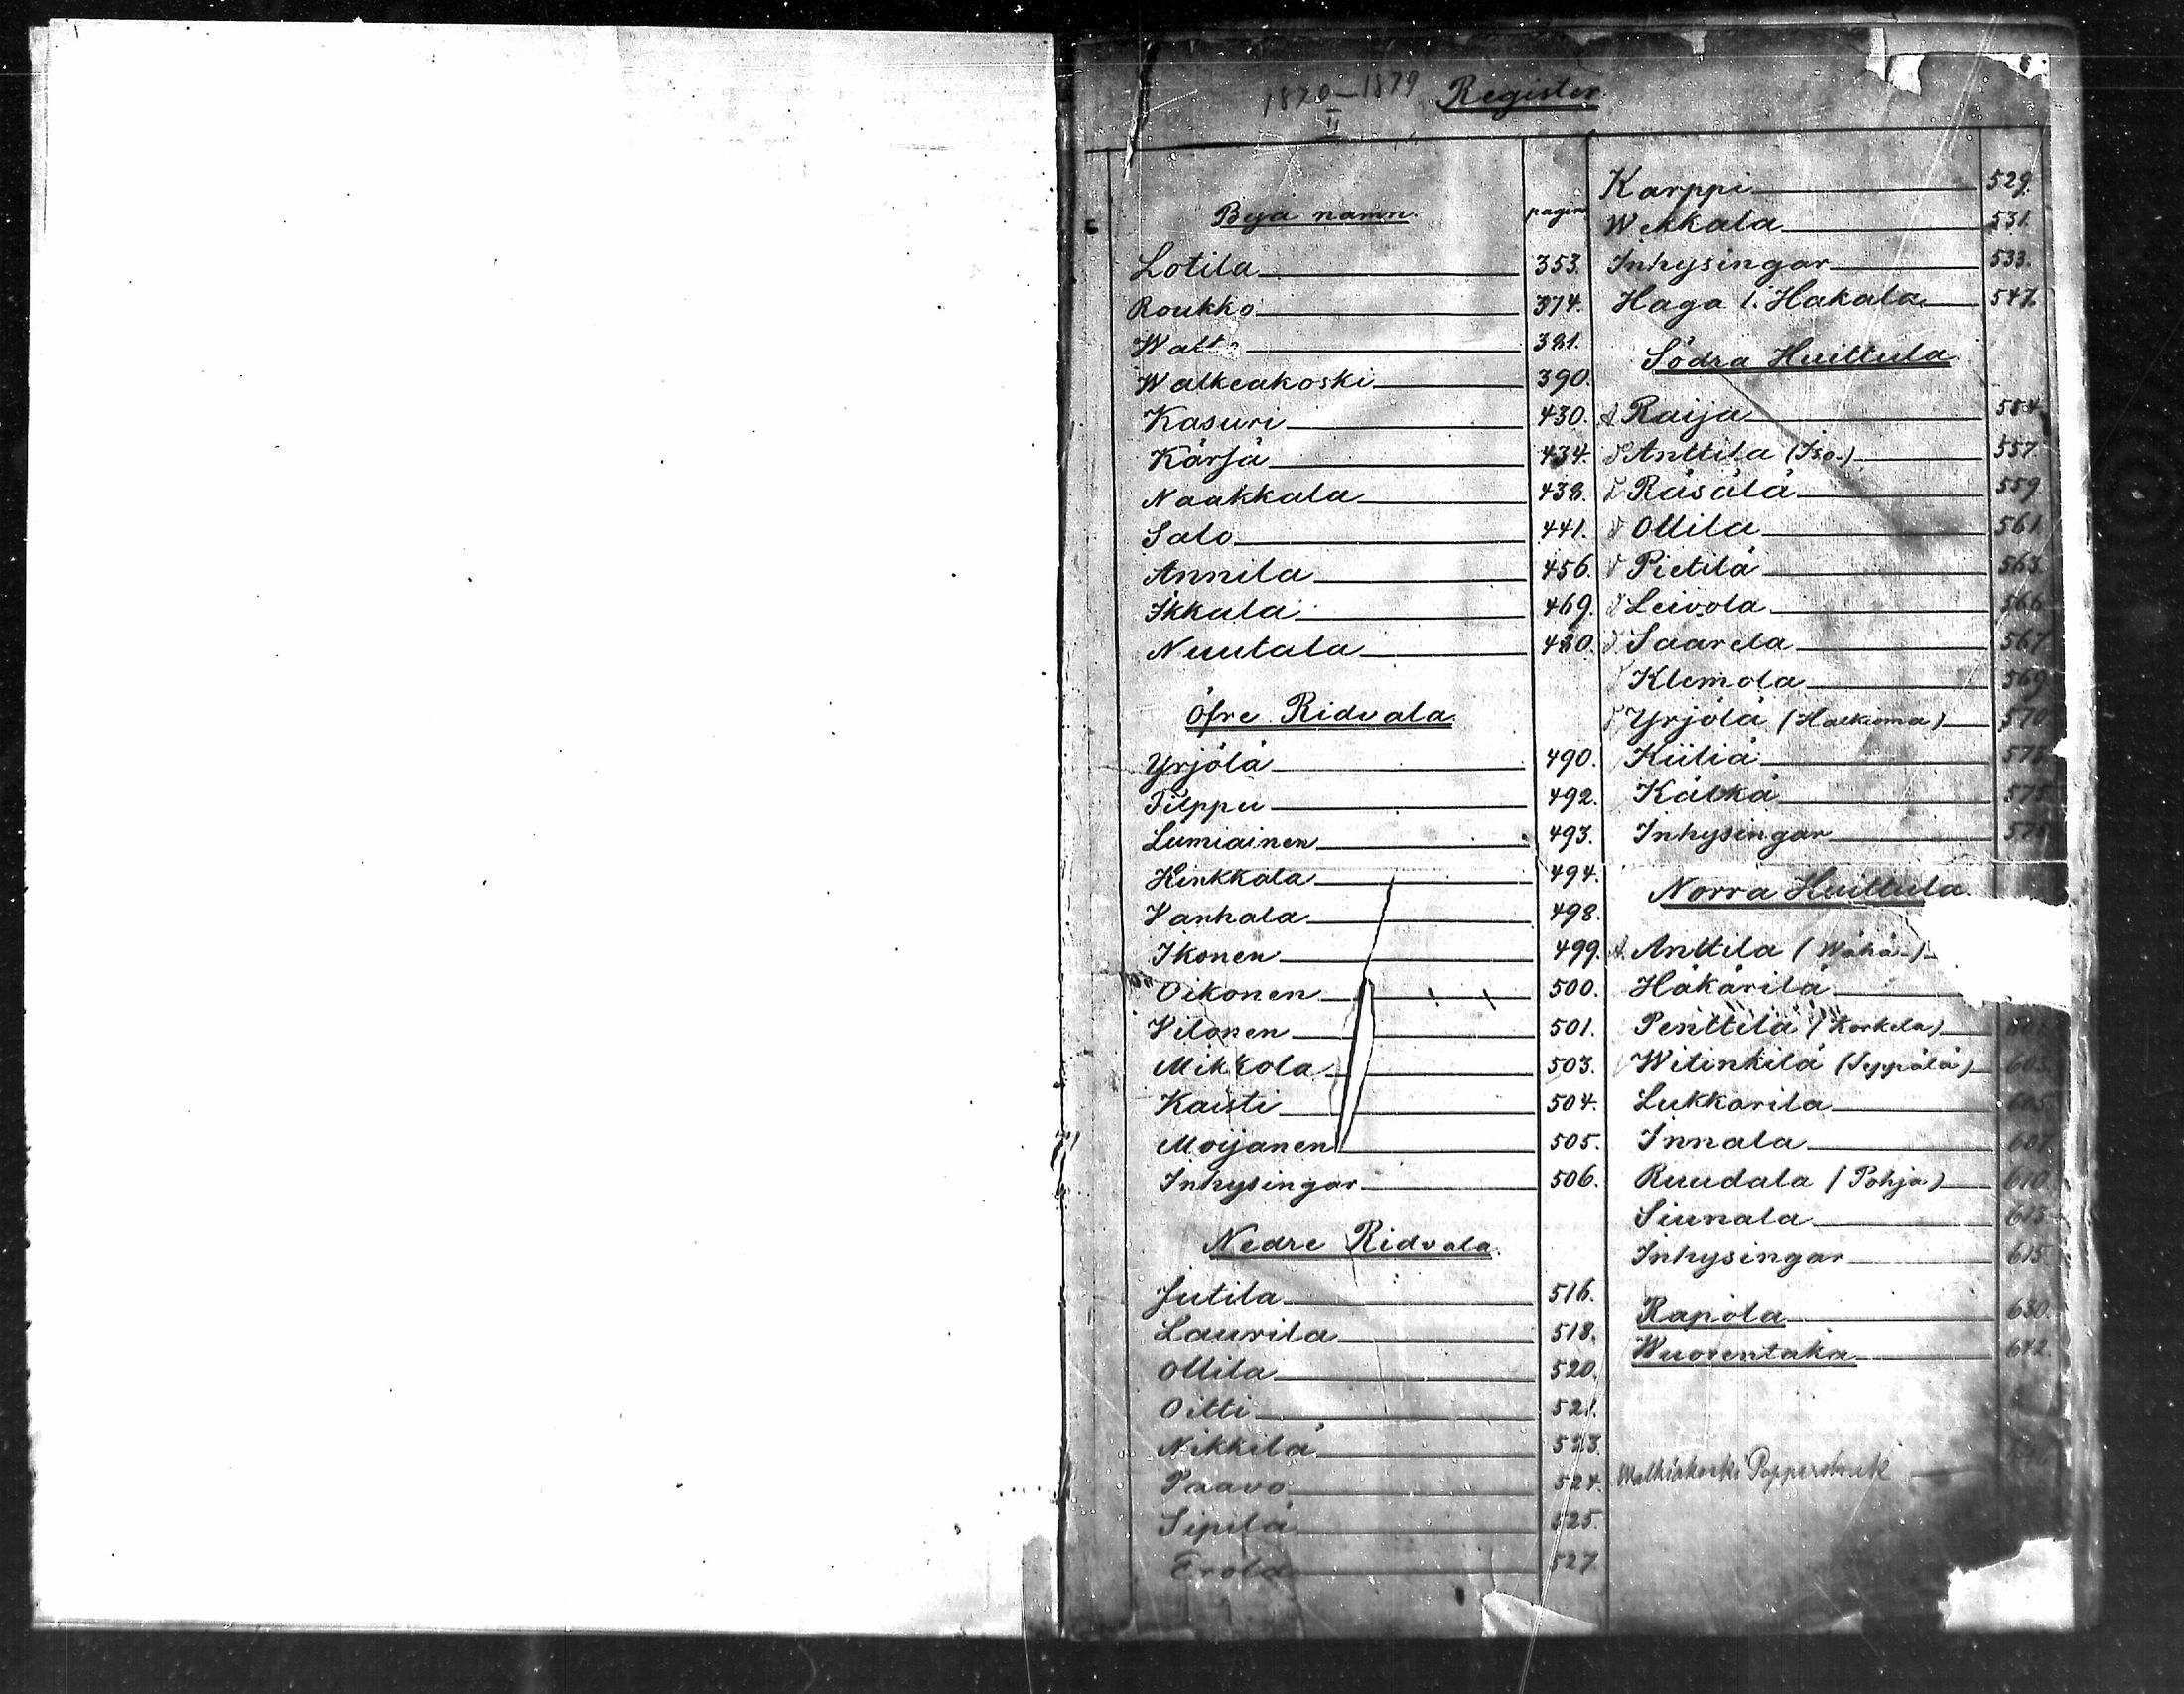 1870–1879 Register
II
Bya namn. pagina
Lotila 353.
Roukko 374.
Walt 381.
Walkeakoski 390.
Kasuri 430.
Kärjä 434.
Naakkala 438.
Salo 441.
Annila 456.
Ikkala 469.
Nuutala 480.
Öfre Ridvala.
Yrjölä 490.
Filppu 492.
Lumiainen 493.
Kinkkala 494.
Vanhala 498.
Ikonen 499.
Oikonen 500.
Vilonen 501.
Mikkola 503.
Kaisti 504.
Moijanen 505.
Inhysingar 506.
Nedre Ridvala.
Jutila 516.
Laurila 518.
Ollila 520.
Oitti 521.
Nikkilä 523.
Paavo 524.
Sipilä 525.
Erola 527
Karppi 529.
Wekkala 531.
Inhysingar 533.
Haga l. Hakala 547.
Södra Huittula
Raija 554
Anttila (Iso-) 557
Räsälä 559
Ollila 561
Pietilä 563.
Leivola 566
Saarela 567
Klemola 569
Yrjölä 570
Kiiliä
Kälkä 575
Inhysingar
Norra Huittula.
Anttila (Wähä-)
Häkärilä
Penttilä (Korkela)
Witinkilä (Seppälä) 603.
Lukkarila 605.
Innala 607
Ruudala (Pohja) 610.
Siunala 613
Inhysingar 615
Rapola 630.
Wuorentaka 642.
Walkiakoski Pappersbruk